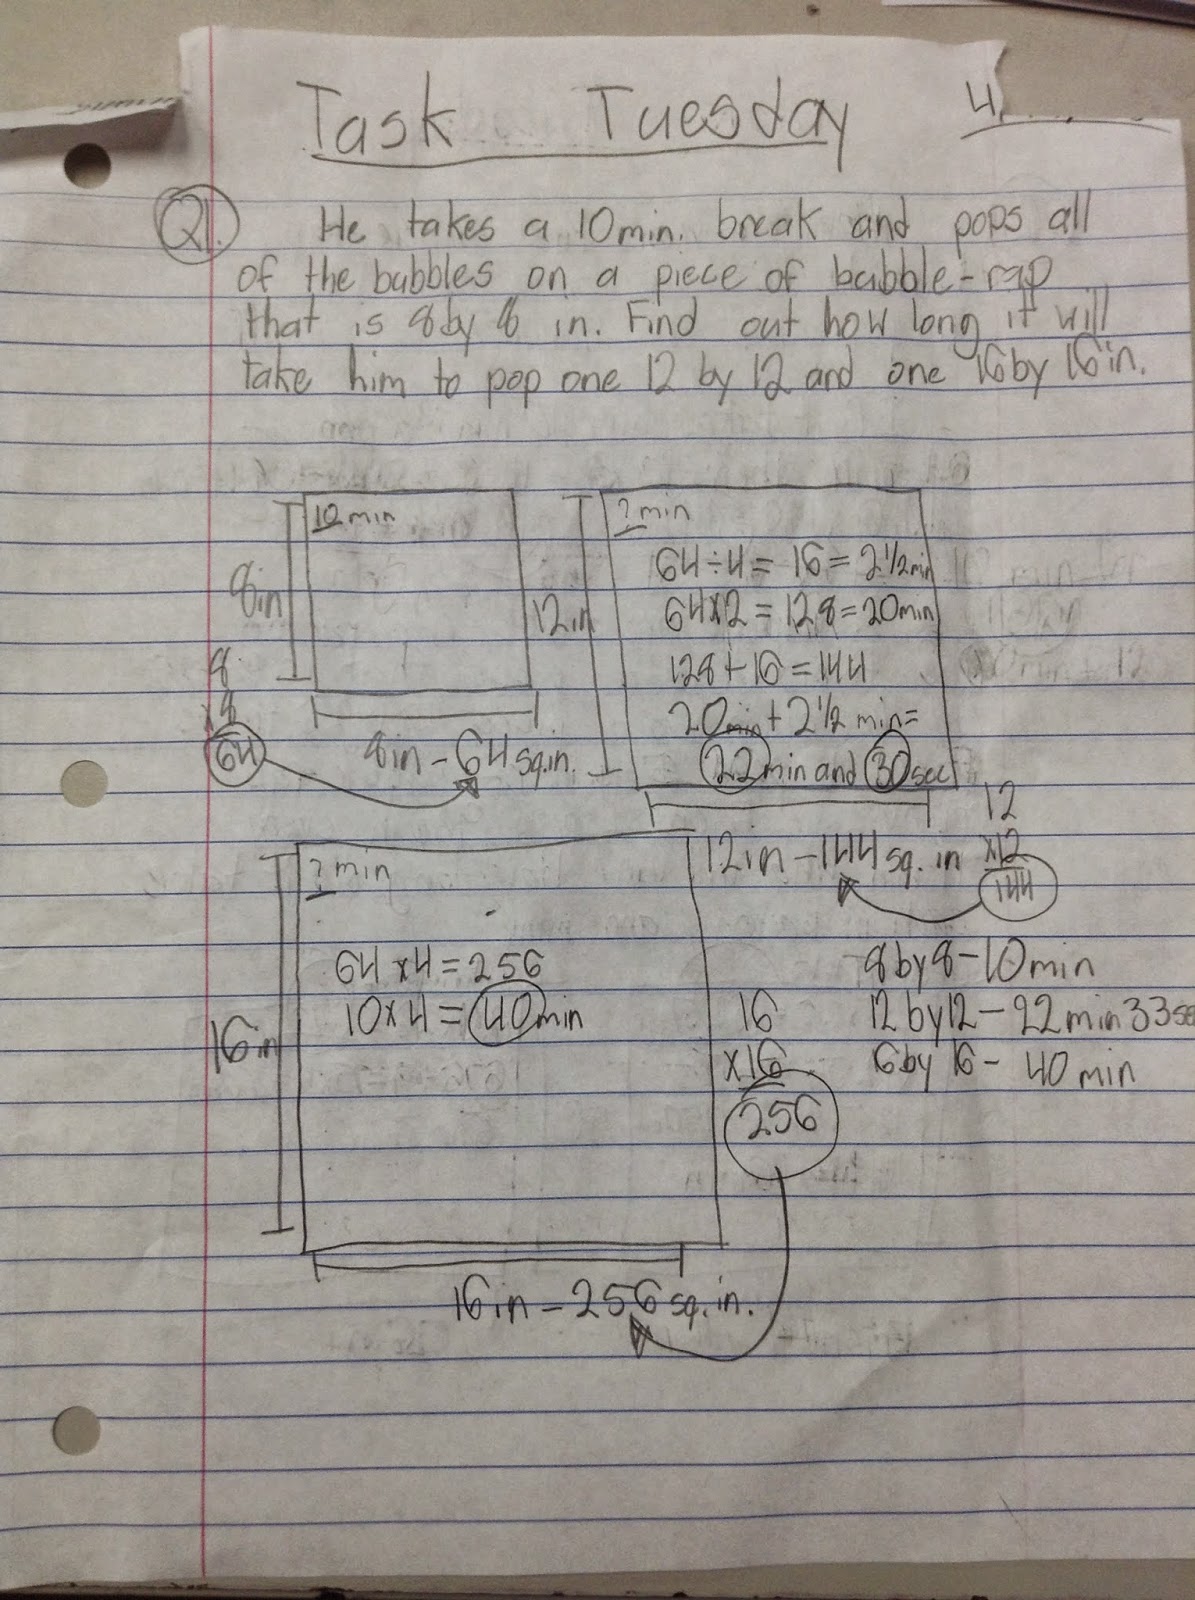 Task Tuesday
Q1. He takes a 10 min. break and pops all
of the bubbles on a piece of bubble-rap
that is 8 by 8 in. Find out how long it will
take him to pop one 12 by 12 and one 16 by 16 in.
10 min
8in
8
x8
64
8in - 64 sq.in.
? min
12in
64÷4 = 16 = 2 1/2 min
64x2 = 128 = 20min
128 + 16 = 144
20min + 2 1/2 min =
22 min and 30 sec
12in - 144 sq. in
12
x12
144
? min
16 in
64 x 4 = 256
10x4 = 40 min
16
x16
256
16 in - 256 sq. in.
8 by 8 - 10 min
12 by 12 - 22 min 33 se
6 by 16 - 40 min